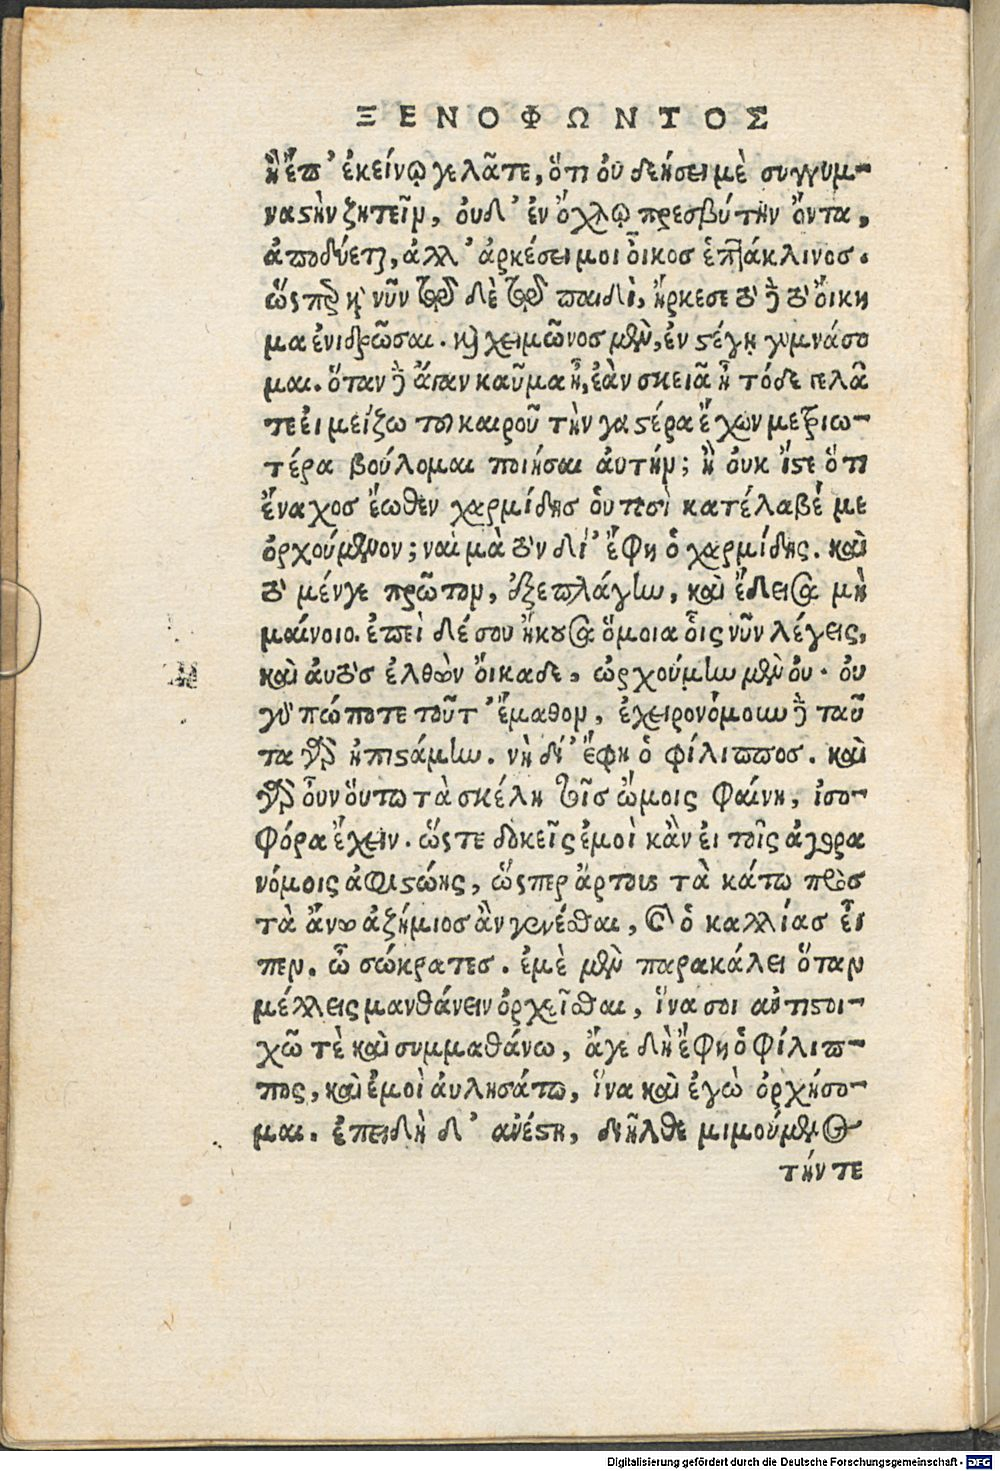 ΞΕΝΟΦΩΝΤΟΣ
ἢ ἐπ' ἐκείνῳ γελᾶτε, ὅτι οὐ δεήσει μὲ συγγυμ-
ναστὴν ζητεῖν, οὐδ' ἐν ὄχλῳ πρεσβύτην ὄντα,
ἀποδύεσθαι, ἀλλ' ἀρκέσει μοι οἶκος ἑπτάκλινος.
ὥσπερ καὶ νῦν τῷδε τῷ παιδὶ, ἤρκεσε τόδε τὸ οἴκη
μα ἐνιδρῶσαι. καὶ χειμῶνος μὲν, ἐν στέγῃ γυμνάσο
μαι. ὅταν δὲ ἄγαν καῦμα ᾖ, ἐὰν σκειᾶ ἢ τόδε γελᾶ
τε εἰ μείζω τοῦ καιροῦ τὴν γαστέρα ἔχων μετριω-
τέρα βούλομαι ποιῆσαι ἀυτήν; ἢ ὀυκ ἴστε ὅτι
ἔναχος ἕωθεν χαρμίδης ὁυτοσὶ κατέλαβέ με
ὀρχούμενον; ναὶ μὰ τὸν δί' ἔφη ὁ χαρμίδης. καὶ
τὸ μένγε πρῶτον, ἐξεπλάγην, καὶ ἔδεισα μὴ
μαίνοιο. ἐπεὶ δέ σου ἤκουσα ὅμοια οἷς νῦν λέγεις,
καὶ ἀυτὸς ἐλθὼν ὄικαδε, ὠρχούμην μὲν ὀυ. ὀυ
γὰρ πώποτε τοῦτ' ἔμαθον, ἐχειρονόμουν δὲ ταῦ
τα γὰρ ἠπιστάμην. νὴ δί' ἔφη ὁ φίλιππος. καὶ
γὰρ οὖν ὅυτω τὰ σκέλη τοῖς ὤμοις φαίνῃ, ἰσο-
φόρα ἔχειν. ὥστε δοκεῖς ἐμοὶ κἂν ἐι τοῖς ἀγορα
νόμοις ἀφιστώης, ὥσπερ ἄρτους τὰ κάτω πρὸς
τὰ ἄνω ἀζήμιος ἂν γενέσθαι, καὶ ὁ καλλίας εἶ
πεν. ὦ σώκρατες. ἐμὲ μὲν παρακάλει ὅταν
μέλλεις μανθάνειν ὀρχεῖσθαι, ἵνα σοι ἀντιστοι-
χῶ τὲ καὶ συμμαθάνω, ἄγε δὴ ἔφη ὁ φίλιπ-
πος, καὶ ἐμοὶ ἀυλησάτω, ἵνα καὶ ἐγὼ ὀρχήσο-
μαι. ἐπειδὴ δ' ἀνέστη, διῆλθε μιμούμενος
τήν τε
Digitalisierung gefördert durch die Deutsche Forschungsgemeinschaft - DFG